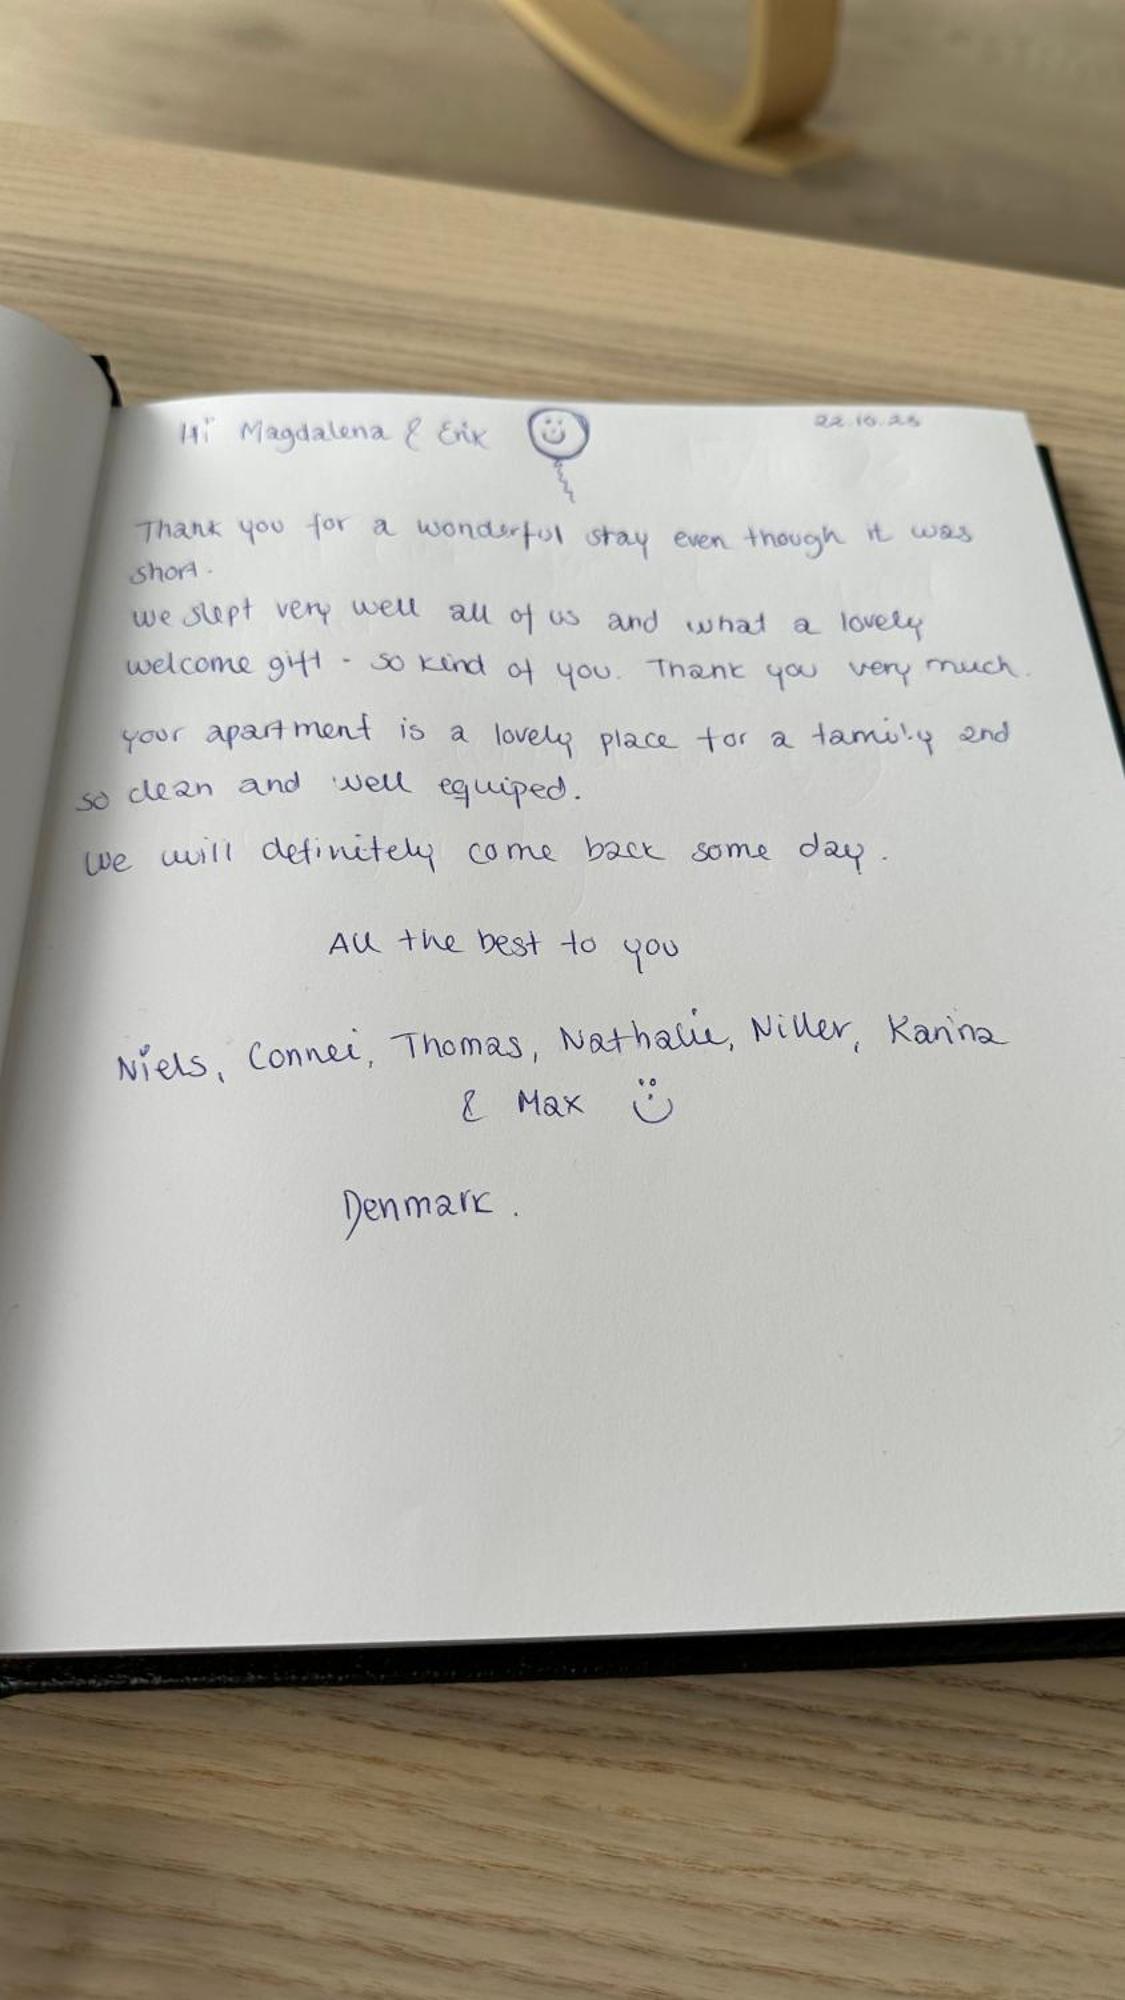 Hi Magdalena & Erik
22.10.25
Thank you for a wonderful stay even though it was
short.
we slept very well all of us and what a lovely
welcome gift - so kind of you. Thank you very much.
your apartment is a lovely place for a family and
so clean and well equiped.
we will definitely come back some day.
All the best to you
Niels, Connei, Thomas, Nathalie, Niller, Karina
& Max
Denmark.